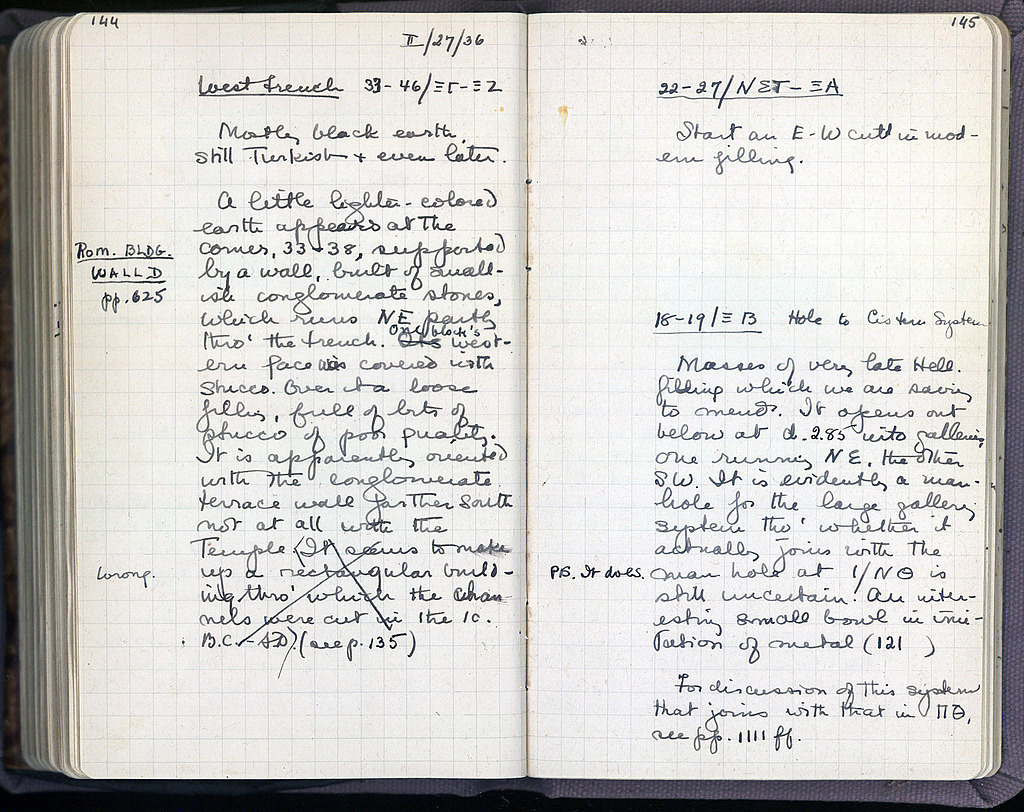 144
II/27/36
West trench 33-46/ΞΓ-ΞΖ
Mostly black earth,
still Turkish + even later.
A little lighter-colored
earth appears at the
corner, 33-38, supported
by a wall, built of small-
ish conglomerate stones,
which runs NE partly
thro' the trench. One block's west-
ern face is covered with
stucco. Over it a loose
filling, full of bits of
stucco of poor quality.
It is apparently oriented
with the conglomerate
terrace wall farther south
not at all with the
Temple. (It seems to make
up a rectangular build-
ing thro' which the chan-
nels were cut in the 1c.
B.C.-A.D.) (see p. 135)
Rom. BLDG.
WALL D
pp. 625
Wrong.
145
22-27/ΝΣΤ-ΞΑ
Start an E-W cut in mod-
ern filling.
18-19/ΞΒ Hole to Cistern System
Masses of very late Hell.
filling which we are saving
to mend. It opens out
below at d. 2.85 into galleries,
one running NE, the other
SW. It is evidently a man-
hole for the large gallery
system tho' whether it
actually joins with the
man hole at 1/ΝΘ is
still uncertain. An inter-
esting small bowl in imi-
tation of metal (121 )
P.S. It does.
For discussion of this system
that joins with that in ΠΘ,
see pp. 1111 ff.